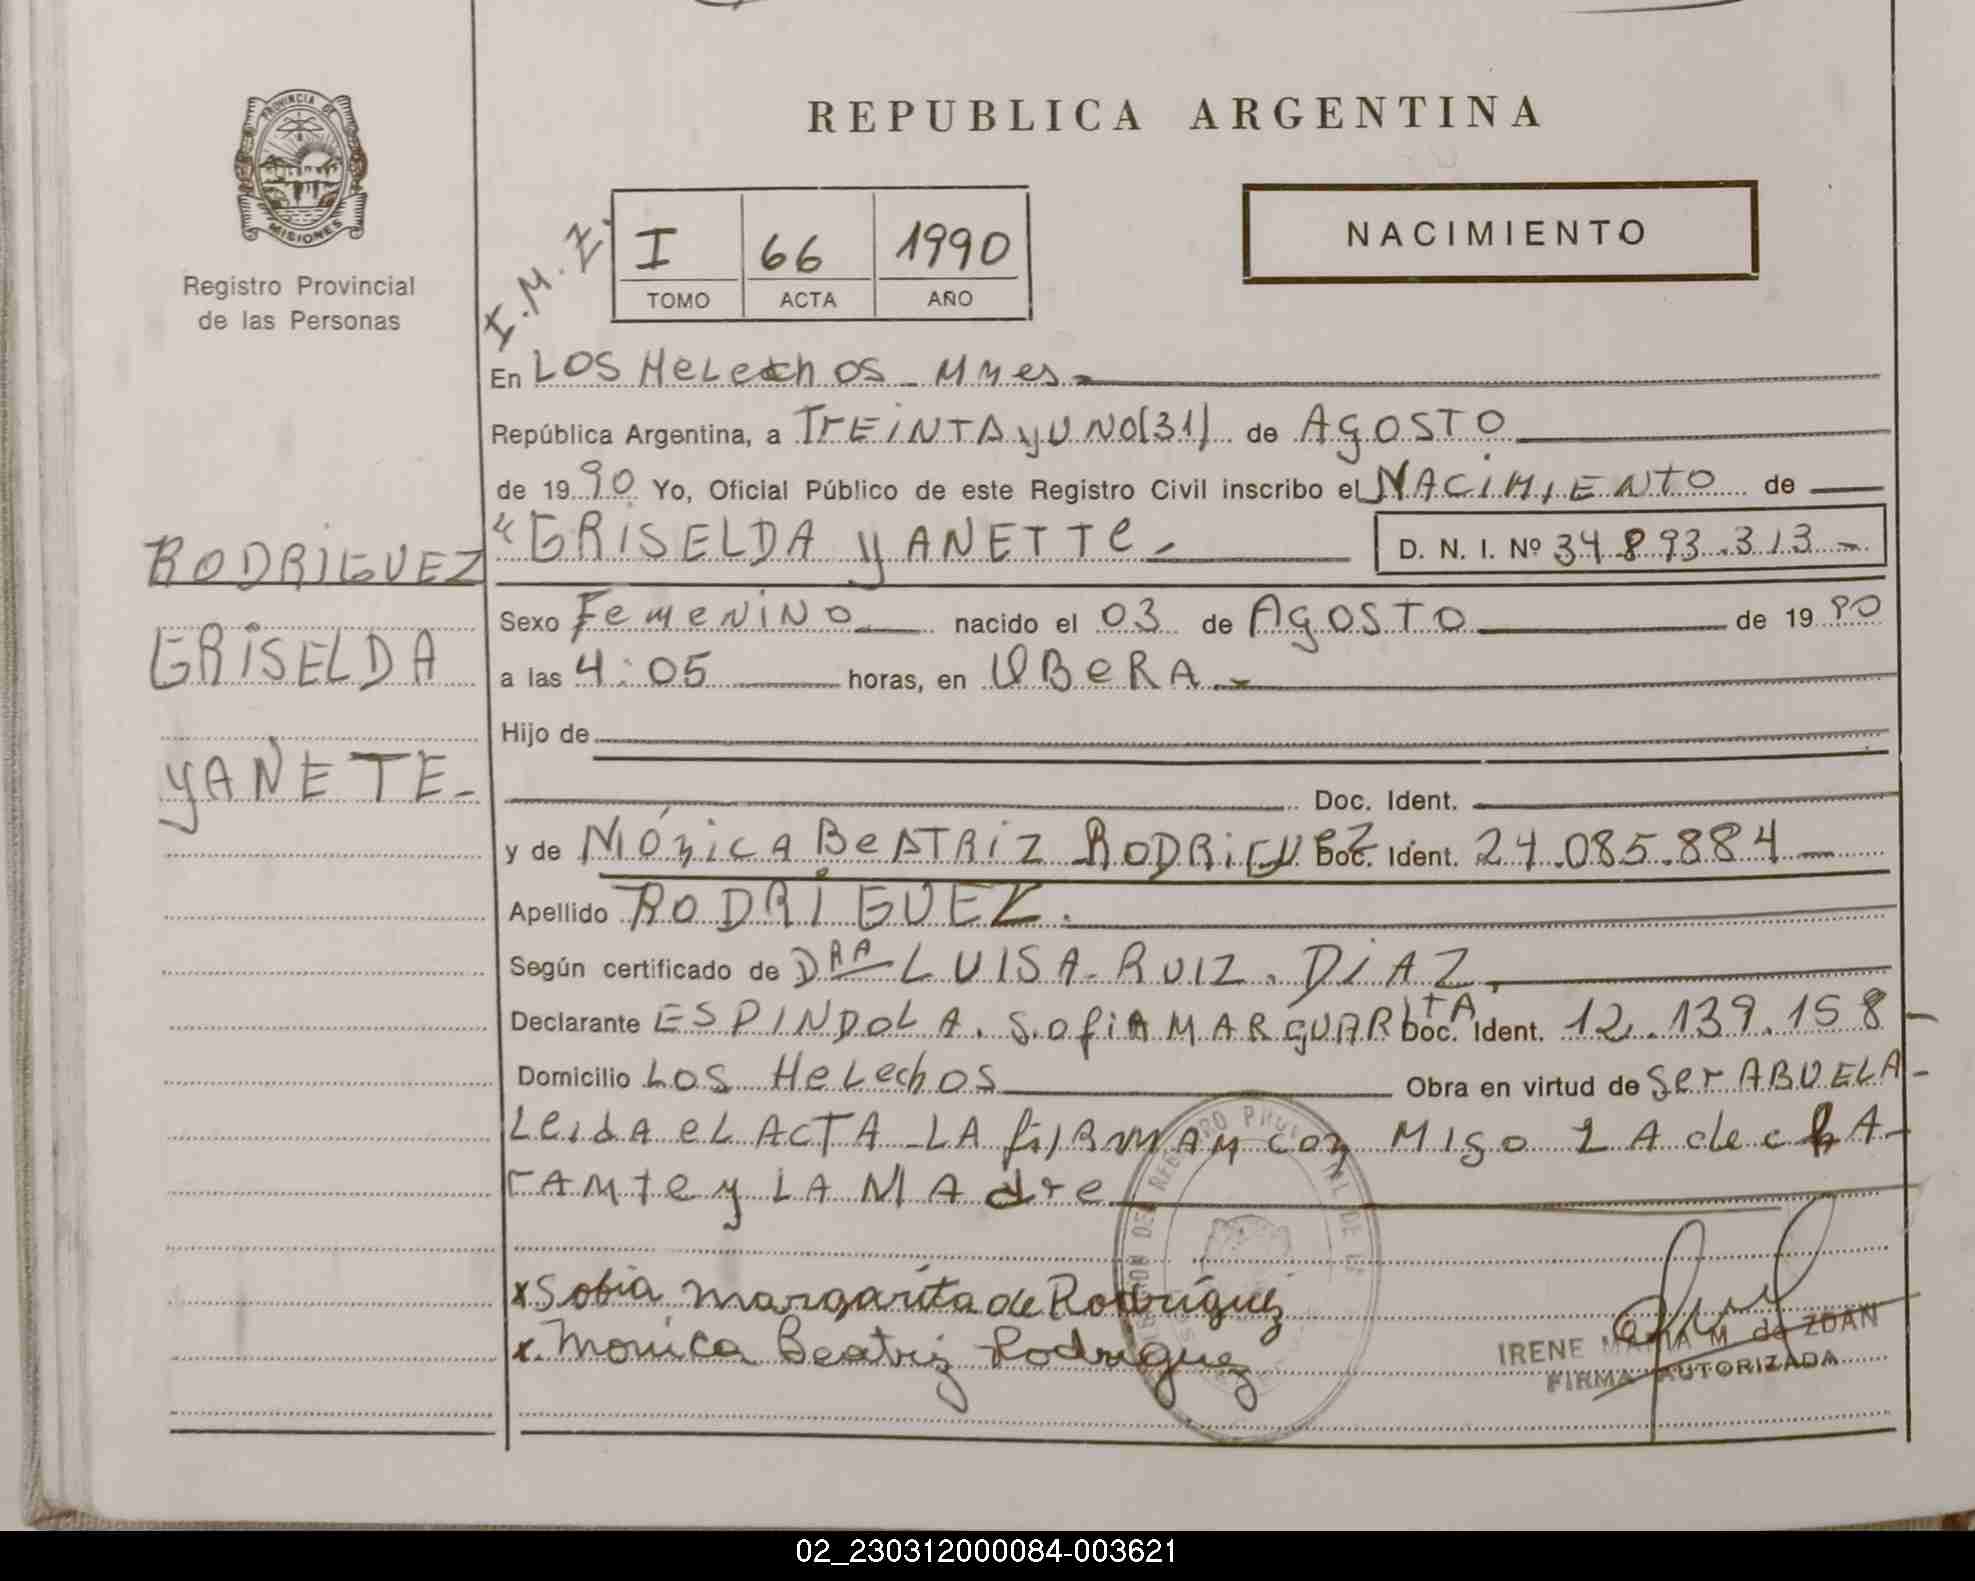 REPUBLICA ARGENTINA
PROVINCIA DE
MISIONES
Registro Provincial
de las Personas
I.M.Z.
I 66 1990
TOMO ACTA AÑO
NACIMIENTO
En LOS HeLechos - Mnes.-
República Argentina, a TrEiNTA y UNO(31) de AgOSTO
de 1990 Yo, Oficial Público de este Registro Civil inscribo el NACiMiENtO de
"GRiSELDA yANETTe.- D. N. I. Nº 34.893.313.-
Sexo FemeNiNO nacido el 03 de AgOSTO de 1990
a las 4:05 horas, en OBeRA.-
Hijo de
Doc. Ident.
y de MóniCA BeATRiZ RODRiGUEZ Doc. Ident. 24.085.884
Apellido RODRiGUEZ.
Según certificado de DRA LUISA. RUIZ. DiAZ.
Declarante ESPINDOLA. SofiA MARGUARITA Doc. Ident. 12.139.158-
Domicilio LOS HeLechOS Obra en virtud de Ser ABUELA-
Leida eL ACTA LA fiRMAN con Migo LA decLA-
rANte y LA MAdre
x Sofia Margarita de Rodríguez
x. Monica Beatriz Rodriguez
IRENE MARIA M. de ZDAN
FIRMA AUTORIZADA
RODRiGUEZ
GRiSELDA
yANETE-
02_230312000084-003621